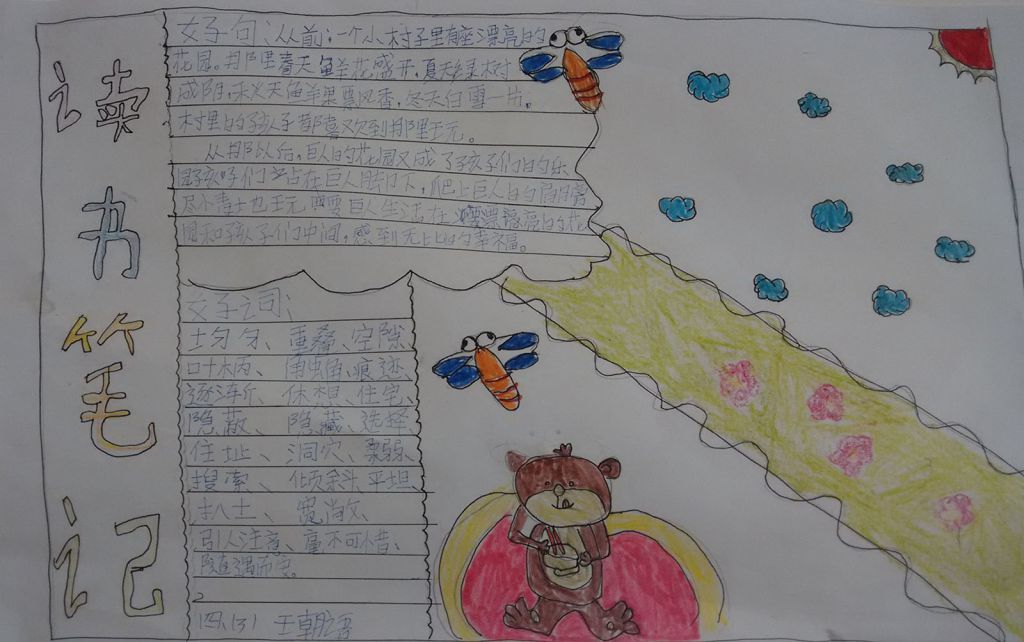 读书笔记
好句:从前:一个小村子里有座漂亮的
花园。那里春天鲜花盛开,夏天绿树
成阴,秋天鲜果飘香,冬天白雪一片。
村里的孩子都喜欢到那里玩。
从那以后,巨人的花园又成了孩子们的乐
园孩子们站在巨人脚下,爬上巨人的肩膀
尽情地玩 巨人生活在漂亮的花
园和孩子们中间,感到无比的幸福。
好词:
均匀、重叠、空隙
叶柄、触角、痕迹
逐渐、休想、住宅、
隐蔽、隐藏、选择
住址、洞穴、柔弱、
搜索、倾斜、平坦、
扒土、宽敞、
引人注意、毫不可惜、
随遇而安。
四、(3) 王朝